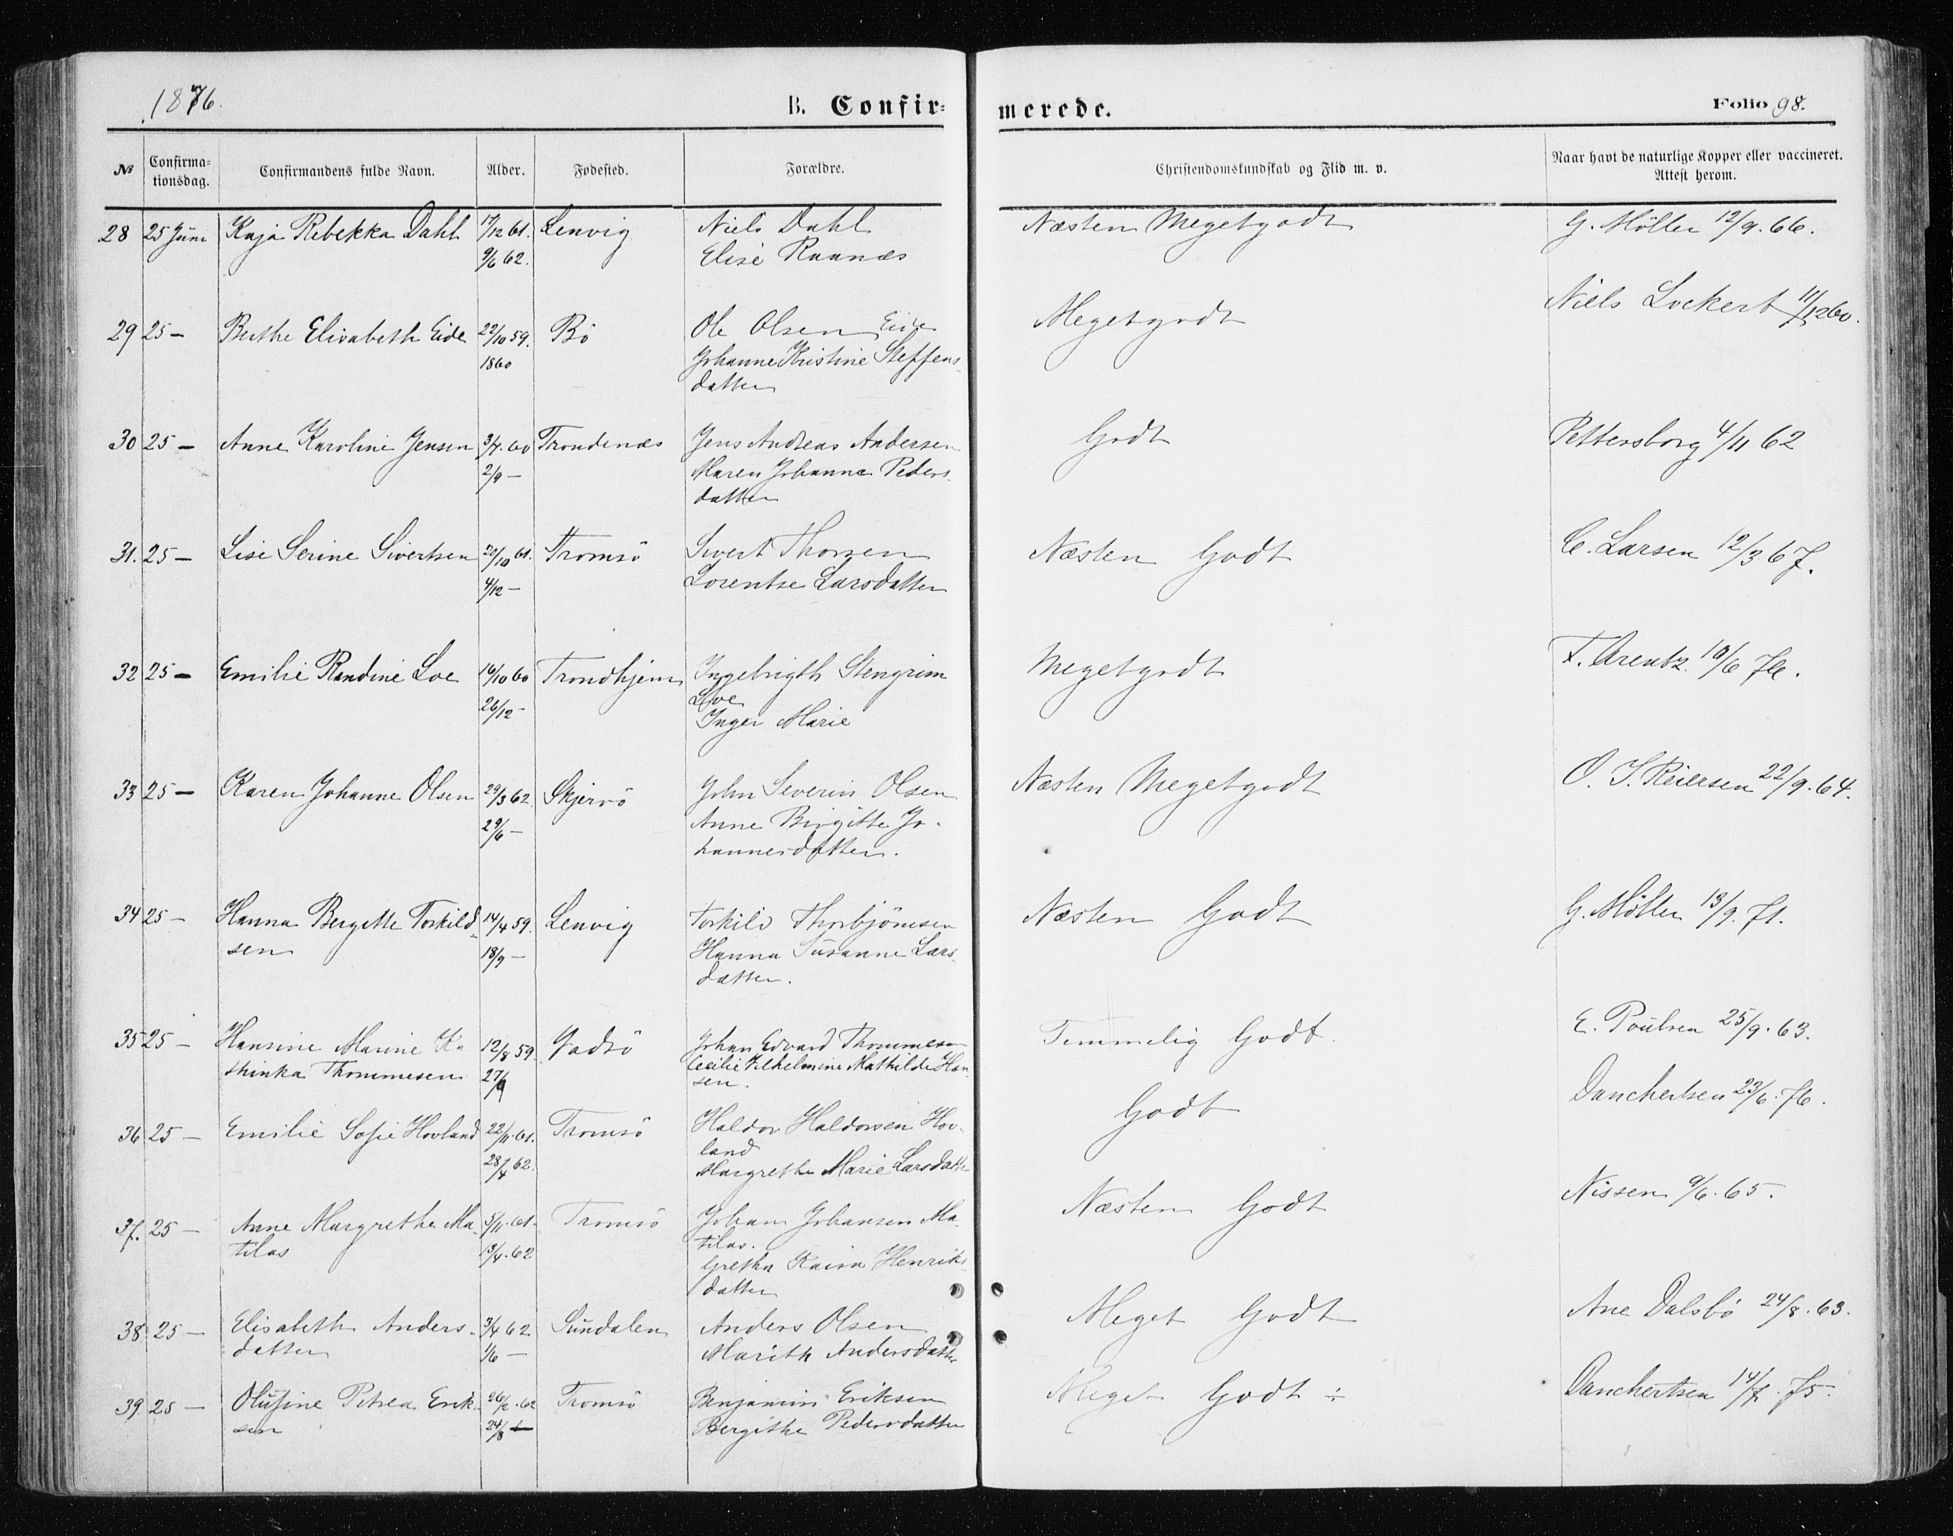 1876.
B. Confir-
merede.
Folio 98.
№ Confirma-tionsdag. Confirmandens fulde Navn. Alder. Fødested. Forældre. Christendomskundskab og Flid m. v. Naar havt de naturlige Kopper eller vaccineret. Attest herom.
28 25 Juni Kaja Rebekka Dahl 17/12 61. Lenvig Niels Dahl Næsten Megetgodt G. Møller 12/9. 66.
9/6 62. Elise Raanæs
29 25 — Berthe Elisabeth Eide 22/10 59. Bö Ole Olsen Eide Megetgodt Niels Lockert 11/12 60.
1860 Johanne Kristine Steffens-
datter
30 25 — Anne Karoline Jensen 3/4. 60 Trondenæs Jens Andreas Andersen Godt Pettersborg 4/11 62
2/9 — Maren Johanne Peders-
datter
31. 25 — Lise Serine Sivertsen 20/10 61. Tromsö Sivert Thorsen Næsten Godt C. Larsen 12/3 67.
4/12 — Lorentse Larsdatter
32 25 — Emilie Randine Loe 16/10 60 Trondhjem Ingebrigth Stengrim Megetgodt F. Arentz. 10/6 76.
26/12 — Loe
Inger Marie
33 25 — Karen Johanne Olsen 29/3 62. Skjervö John Severin Olsen Næsten Megetgodt O. S. Reiersen 22/9. 64.
29/6 — Anne Birgitte Jo-
hannesdatter.
34 25 — Hanna Bergette Torkild- 14/4 59. Lenvig Torkild Thorbjörnsen Næsten Godt G. Møller 13/9. 71.
sen 18/9 — Hanna Susanne Lars-
datter.
35 25 — Hansine Marine Ka- 12/8 59. Vadsö Johan Edvard Thommesen Temmelig Godt. E. Poulsen 25/9. 63.
thinka Thommesen 27/9 Cecilie Vilhelmine Mathilde Han-
sen.
36 25 — Emilie Sofie Hovland 22/11. 61. Tromsö Haldor Haldorsen Hov- Godt Danchertsen 23/6. 76.
28/4 62. land
Margrethe Marie Larsdatter
37. 25 — Anne Margrethe Ma- 5/11. 61. Tromsö Johan Johansen Ma- Næsten Godt Nissen 9/6. 65.
tilas 13/4. 62 tilas.
Grethe Kaisa Henriks-
datter
38. 25 — Elisabeth Anders- 3/4 62 Sundalen Anders Olsen Meget Godt Ane Dalsbö 24/8. 63.
datter 1/6 — Marith Andersdatter
39. 25 — Olufine Petrea Erik- 26/2. 62 Tromsö Benjamin Eriksen Meget Godt ÷ Danchertsen 14/7. 75.
sen 24/8 — Bergithe Pedersdatter